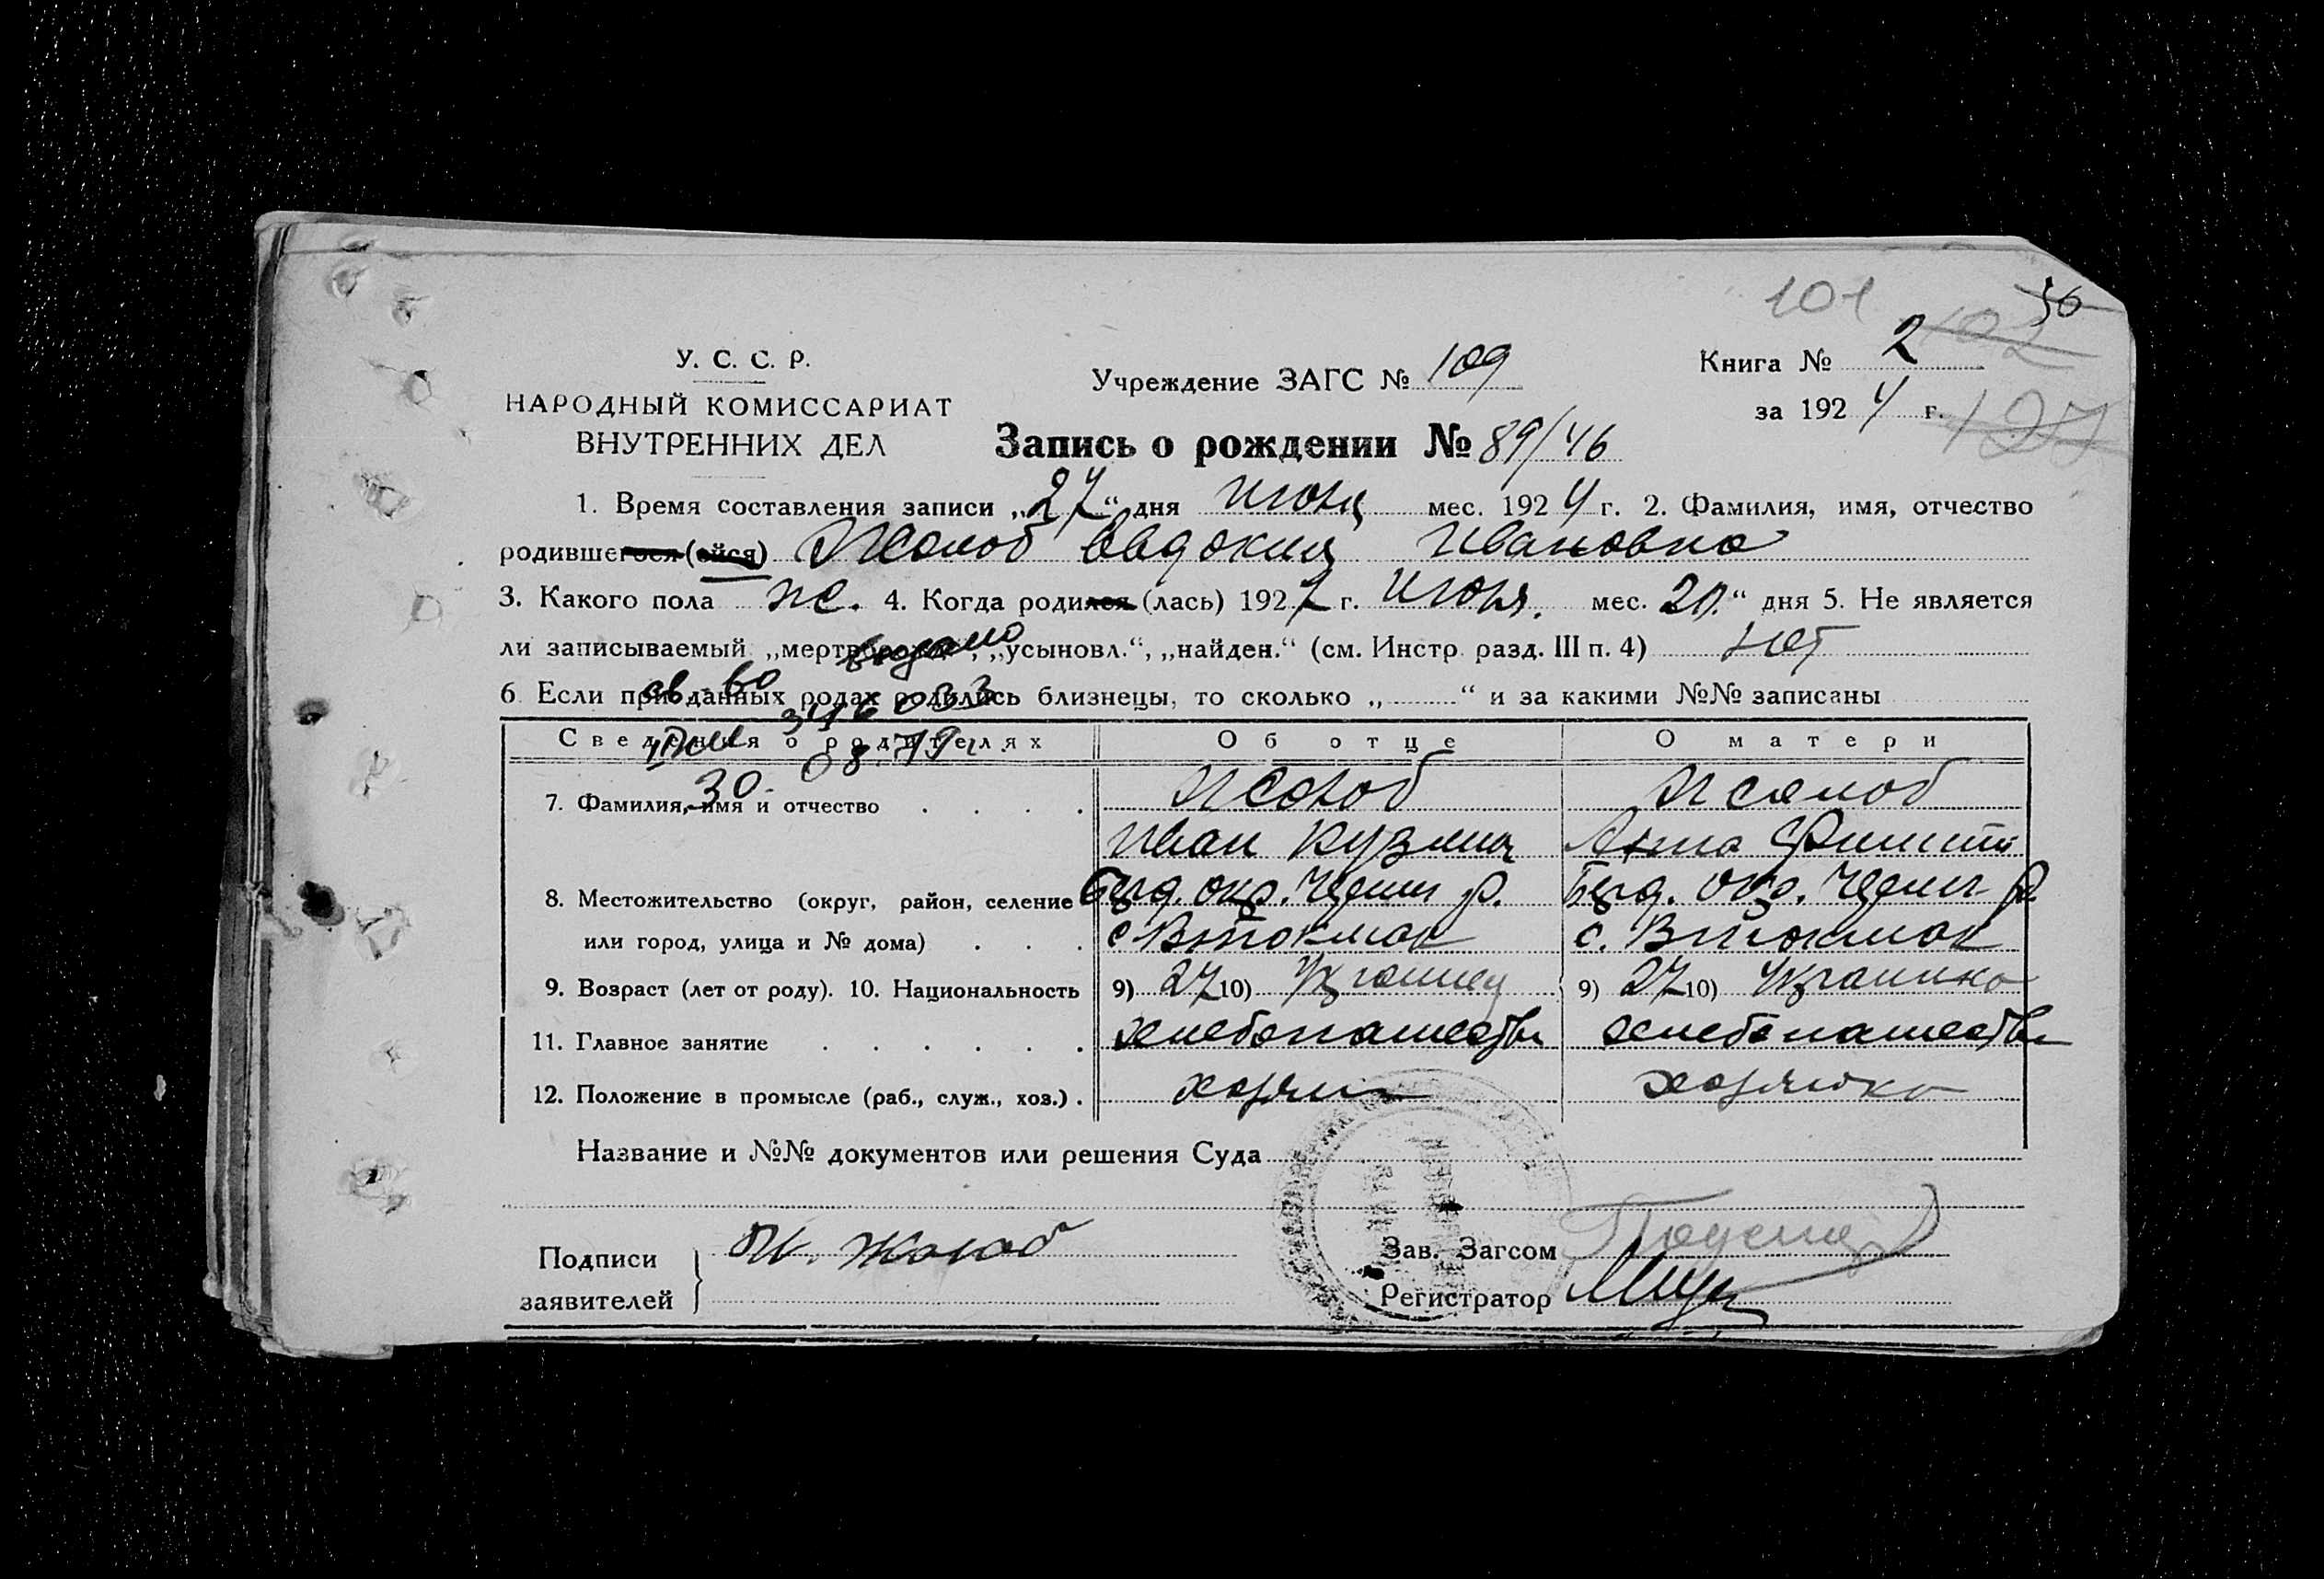 101
36
102
У. С. С. Р.
Учреждение ЗАГС № 109
Книга № 2
НАРОДНЫЙ КОМИССАРИАТ
за 1924 г.
127
ВНУТРЕННИХ ДЕЛ
Запись о рождении № 89/46
1. Время составления записи „27“ дня июня мес. 1924 г. 2. Фамилия, имя, отчество
родившегося (ейся) Жолоб Евдокия Ивановна
3. Какого пола ж. 4. Когда родился (лась) 192 г. июня. мес. 20“ дня 5. Не является
ли записываемый „мертворожд“, „усыновл.“, „найден.“ (см. Инстр. разд. III п. 4) нет
6. Если при данных родах родились близнецы, то сколько „ “ и за какими №№ записаны
выдано
св-во
346033
30. 08. 79г.
Сведения о родителях Об отце О матери
7. Фамилия, имя и отчество . . . . Жолоб Жолоб
Иван Кузмич Анна
8. Местожительство (округ, район, селение Берд. окр. р. Берд. окр. р.
или город, улица и № дома) . . . с. Втокмак с. Втокмак
9. Возраст (лет от роду). 10. Национальность 9) 27 10) Украинец 9) 27 10) Украинка
11. Главное занятие . . . . . . хлебопашество хлебопашество
12. Положение в промысле (раб., служ., хоз.) . хозяин хозяйка
Название и №№ документов или решения Суда
Подписи
заявителей
Жолоб
Зав. Загсом
Регистратор